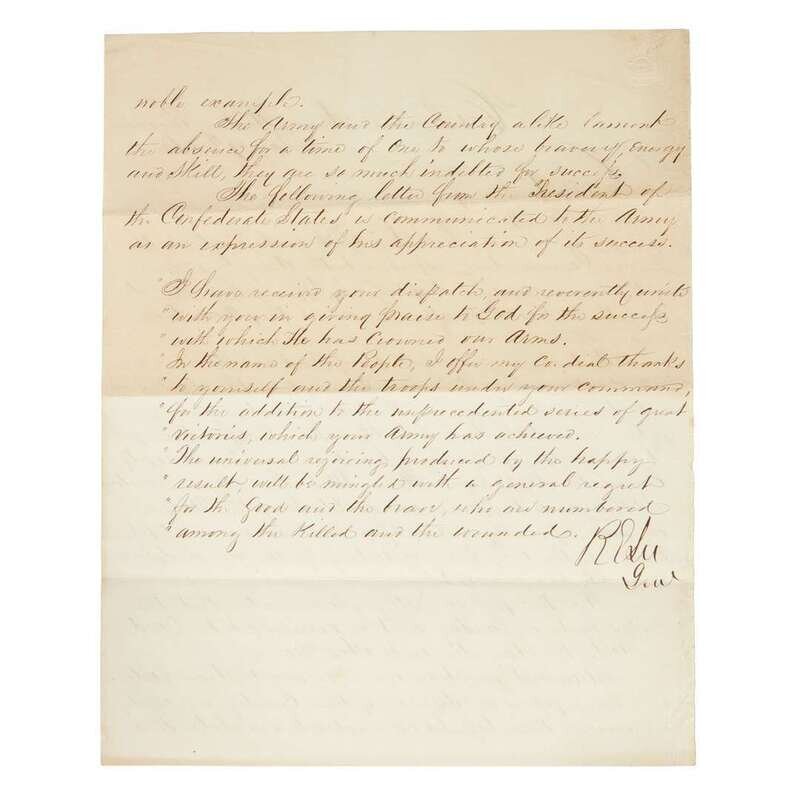 noble example.
The Army and the Country alike lament
the absence for a time of one to whose bravery, Energy
and Skill, they are so much indebted for success.
The following letter from the President of
the Confederate States is communicated to the Army
as an expression of his appreciation of its success.
"I have received your dispatch, and reverently unite
"with you in giving praise to God for the success
"with which He has Crowned our Arms.
"In the name of the People, I offer my Cordial thanks
"to yourself and the troops under your command,
"for the addition to the unprecedented series of great
"Victories, which your Army has achieved.
"The universal rejoicing produced by the happy
"result, will be mingled with a general regret
"for the Good and the brave, who are numbered
"among the Killed and the wounded.
R E Lee
Genl